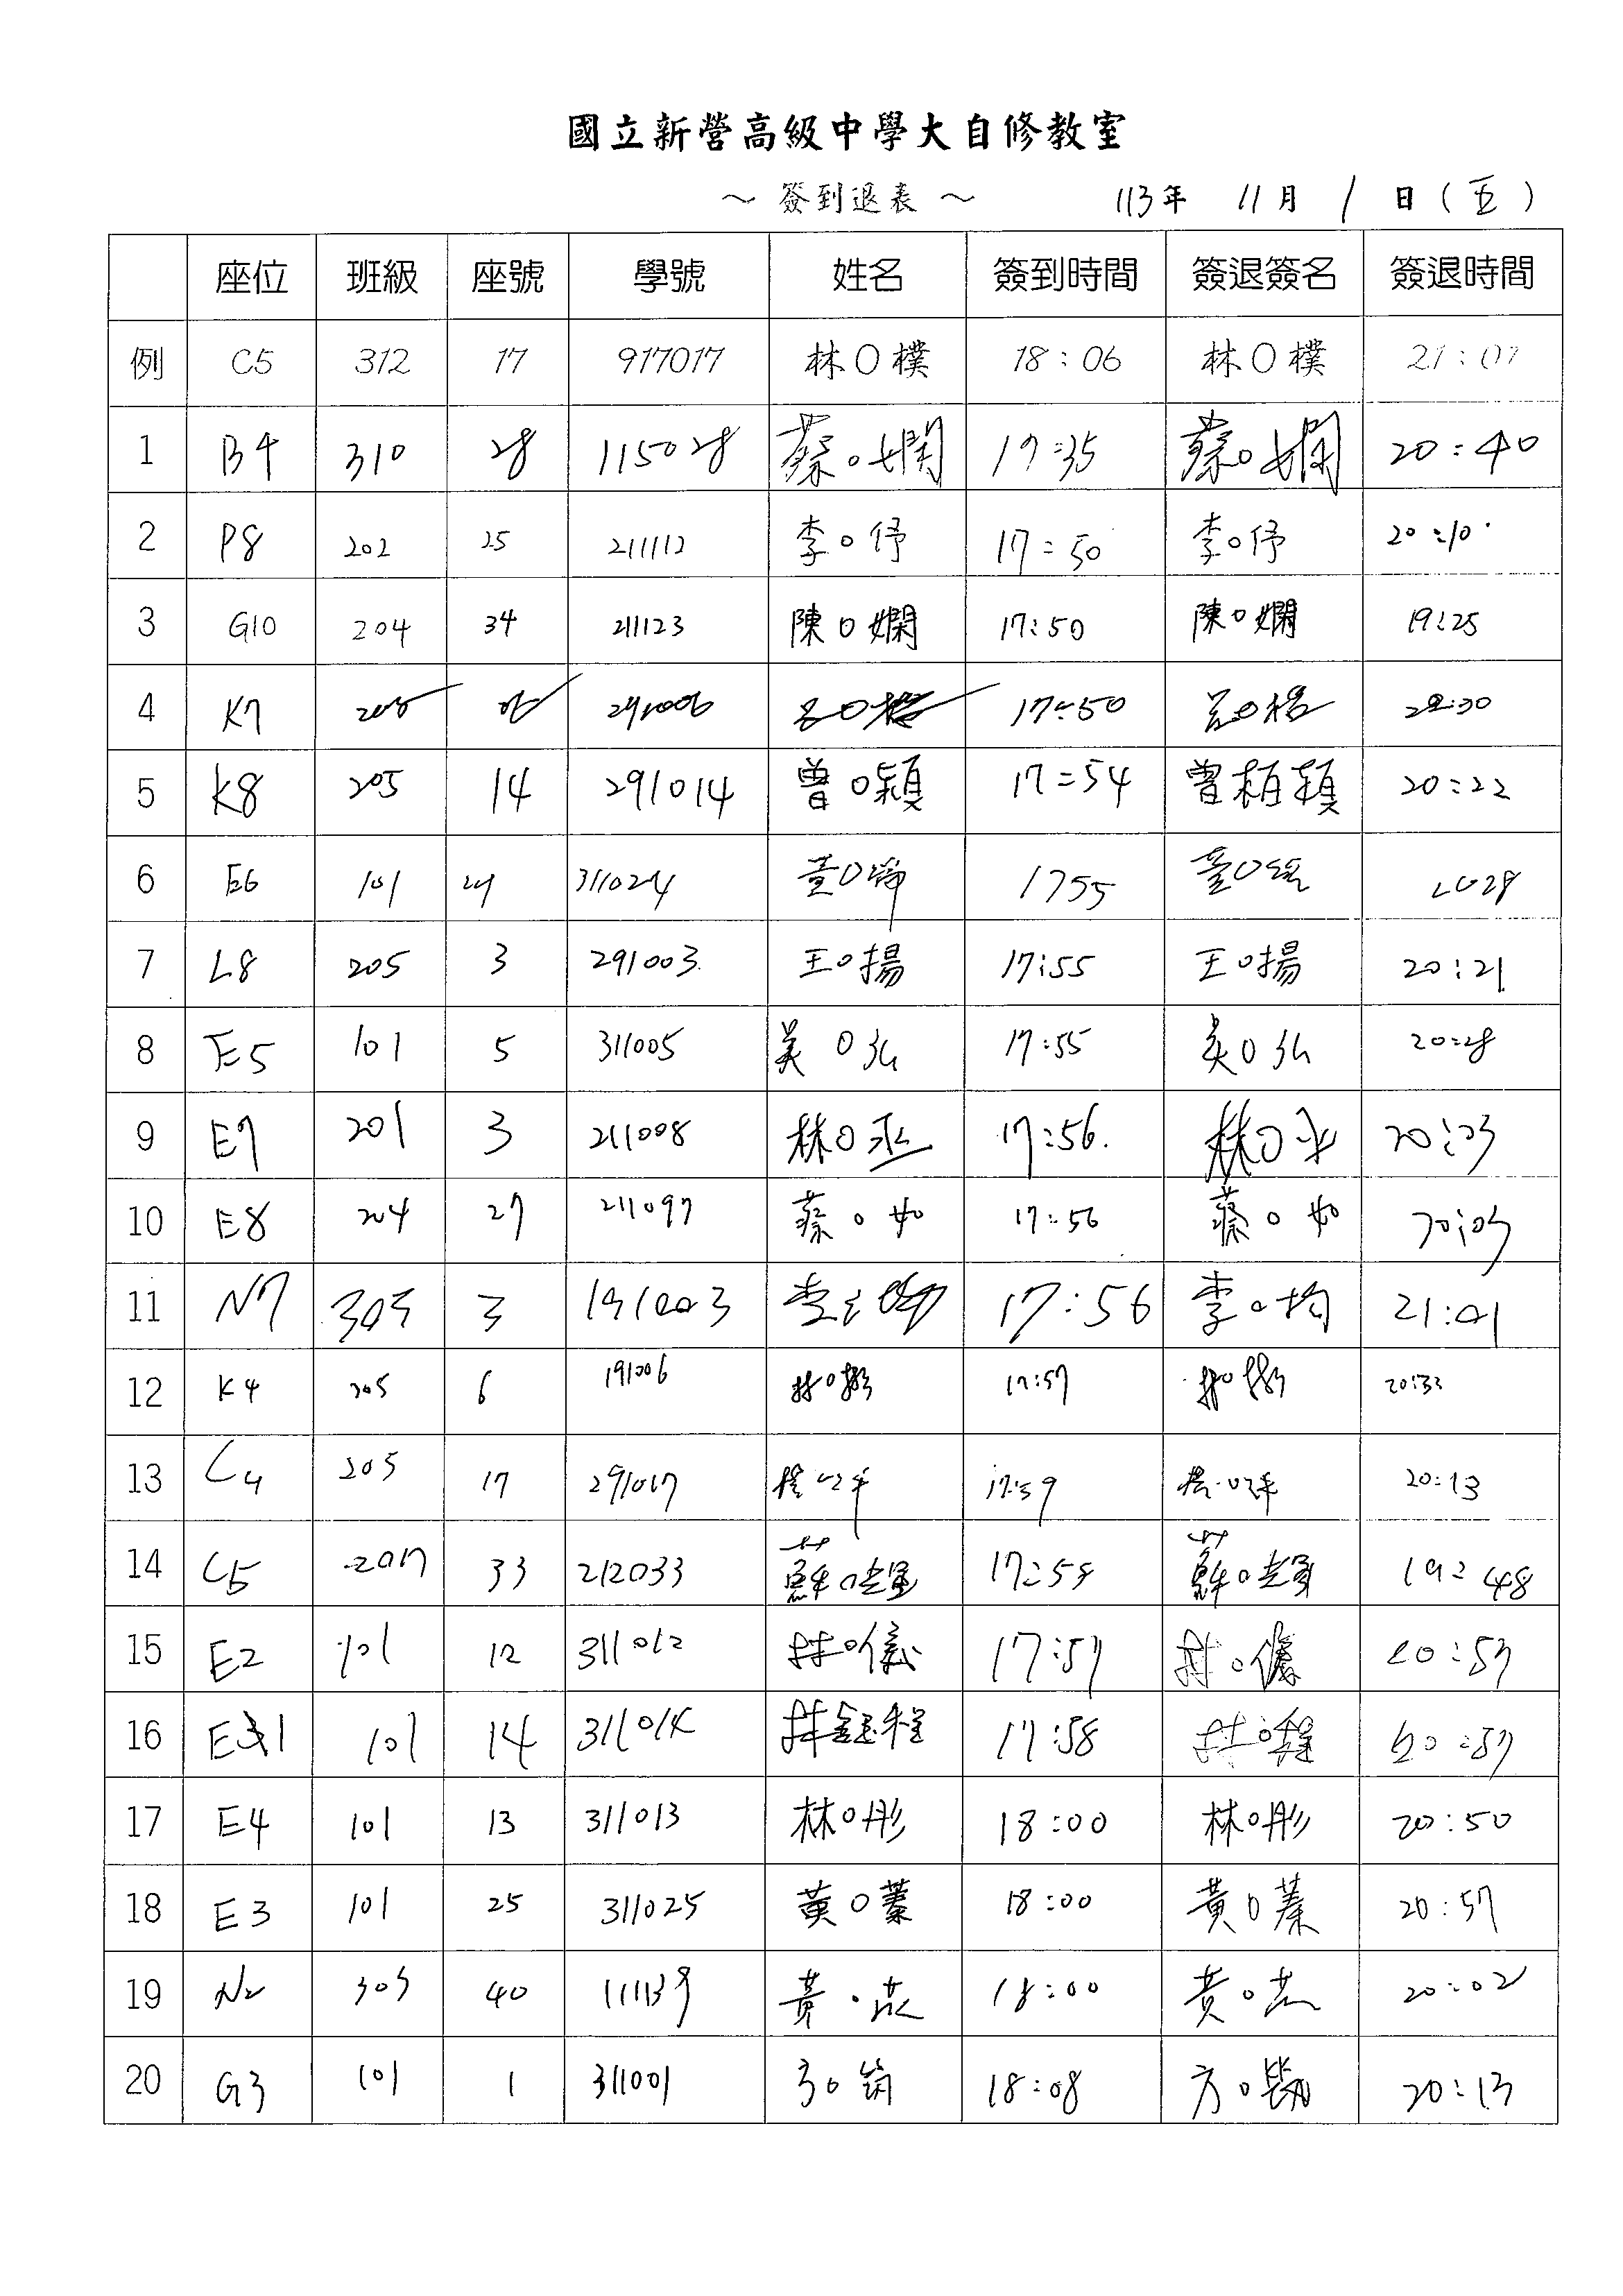 國立新營高級中學大自修教室
～ 簽到退表 ～ 113年 11月 1 日 ( 五 )
座位 班級 座號 學號 姓名 簽到時間 簽退簽名 簽退時間
例 C5 312 17 917017 林O樸 18：06 林O樸 21：07
1 B4 310 28 115028 蔡O嫻 17:35 蔡O嫻 20:40
2 P8 202 25 211112 李O伃 17:50 李O伃 20:10
3 G10 204 34 211123 陳O嫻 17:50 陳O嫻 19:25
4 K7 205 17:50
5 K8 205 14 291014 曾O穎 17:54 曾栢穎 20:22
6 E6 101 24 311024 1755 2028
7 L8 205 3 291003 王O揚 17:55 王O揚 20:21
8 E5 101 5 311005 O弘 17:55 O弘 20:28
9 E7 201 3 211008 林O丞 17:56 林O丞 20:03
10 E8 204 27 211097 蔡O如 17:56 蔡O如 20:03
11 N7 303 3 191003 李O 17:56 李O均 21:01
12 K4 205 6 191006 林O 17:57 林O 20:33
13 C4 205 17 291017 17:59 20:13
14 C5 207 33 212033 蘇O輝 17:58 蘇O輝 19:48
15 E2 101 12 311012 林O儀 17:57 林O儀 20:57
16 E1 101 14 311014 林鈺程 17:58 林O程 20:57
17 E4 101 13 311013 林O彤 18:00 林O彤 20:50
18 E3 101 25 311025 黃O蓁 18:00 黃O蓁 20:57
19 N2 303 40 111139 黃O 18:00 黃O 20:02
20 G3 101 1 311001 方O筠 18:08 方O筠 20:13